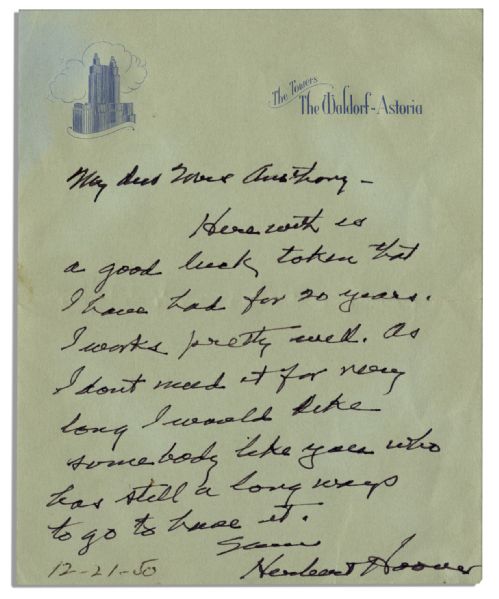 The Towers
The Waldorf-Astoria
My dear Miss Anthony -
Herewith is
a good luck token that
I have had for 20 years.
I works pretty well. As
I dont need it for very
long I would like
somebody like you who
has still a long ways
to go to have it.
Herbert Hoover
12-21-50